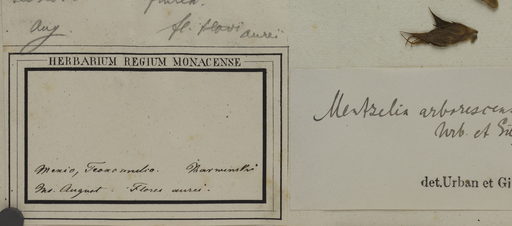 Aug. fl. flavi aurei
HERBARIUM REGIUM MONACENSE
Mexio, Karwinski
Ms. August. Flores aurei.
Mentzelia arborescens
Urb. et Gi
det.Urban et Gi